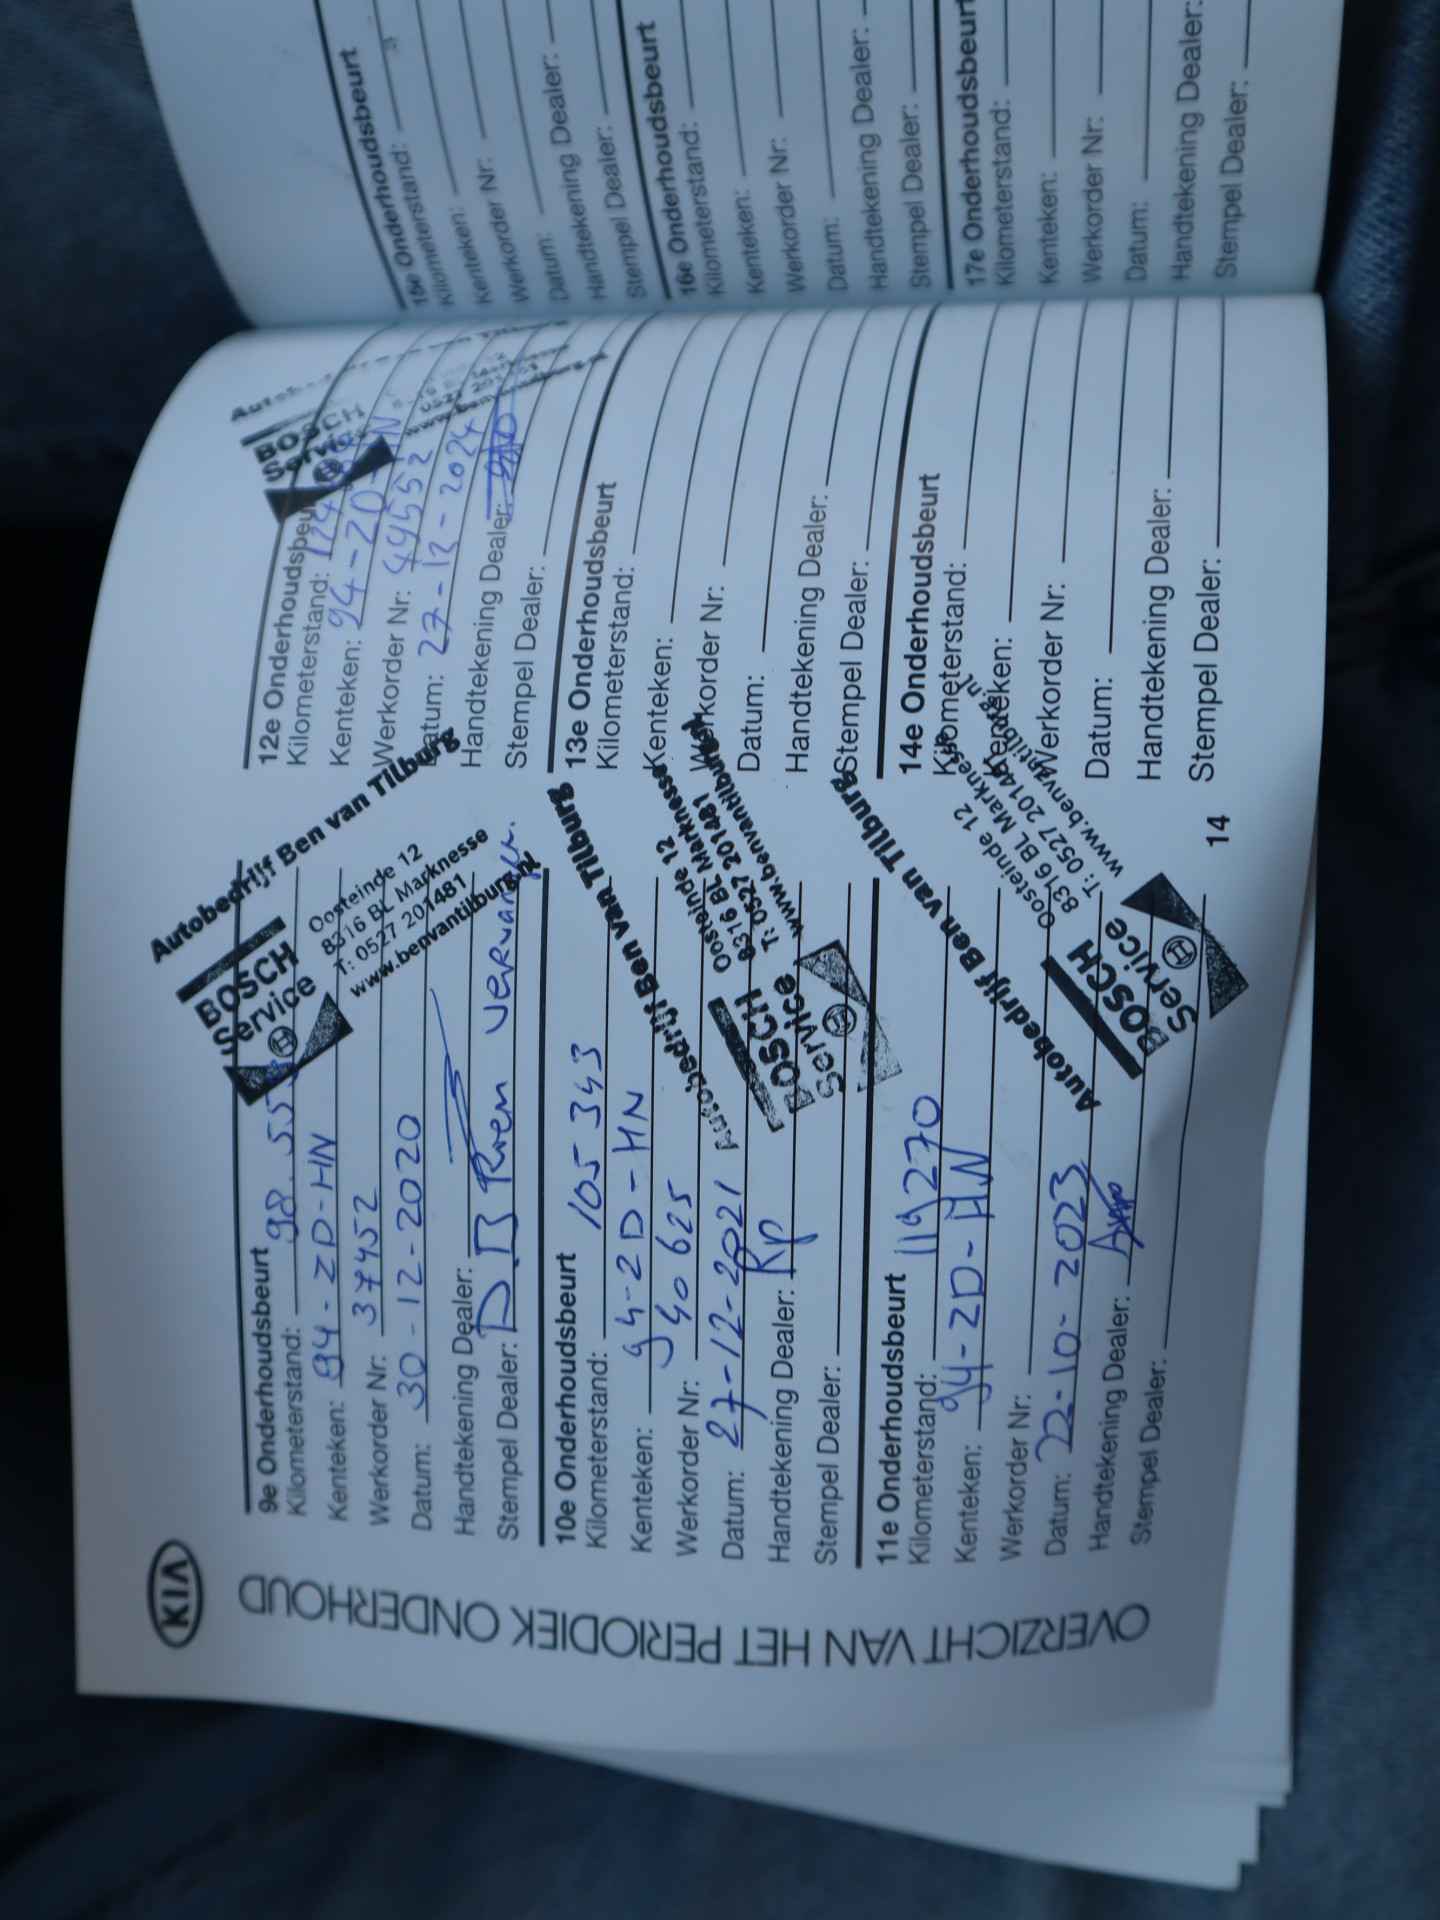 KIA
OVERZICHT VAN HET PERIODIEK ONDERHOUD
9e Onderhoudsbeurt
Kilometerstand: 98.55
Kenteken: 94-ZD-HN
Werkorder Nr: 37452
Datum: 30-12-2020
Handtekening Dealer:
Stempel Dealer: D.B Riem vervangen.
Autobedrijf Ben van Tilburg
BOSCH
Service
Oosteinde 12
8316 BL Marknesse
T: 0527 201481
www.benvantilburg.nl
10e Onderhoudsbeurt
Kilometerstand: 105 343
Kenteken: 94-ZD-HN
Werkorder Nr: 40625
Datum: 27-12-2021
Handtekening Dealer: Rp
Stempel Dealer:
Autobedrijf Ben van Tilburg
BOSCH
Service
Oosteinde 12
8316 BL Marknesse
T: 0527 201481
www.benvantilburg.nl
11e Onderhoudsbeurt
Kilometerstand: 119270
Kenteken: 94-ZD-HN
Werkorder Nr:
Datum: 22-10-2023
Handtekening Dealer:
Stempel Dealer:
Autobedrijf Ben van Tilburg
BOSCH
Service
Oosteinde 12
8316 BL Marknesse
T: 0527 201481
www.benvantilburg.nl
12e Onderhoudsbeurt
Kilometerstand:
Kenteken: 94-ZD-HN
Werkorder Nr: 44552
Datum: 27-12-2024
Handtekening Dealer:
Stempel Dealer:
BOSCH
Service
0527 201481
www.benvantilburg.nl
13e Onderhoudsbeurt
Kilometerstand:
Kenteken:
Werkorder Nr:
Datum:
Handtekening Dealer:
Stempel Dealer:
14e Onderhoudsbeurt
Kilometerstand:
Kenteken:
Werkorder Nr:
Datum:
Handtekening Dealer:
Stempel Dealer:
14
15e Onderhoudsbeurt
Kilometerstand:
Kenteken:
Werkorder Nr:
Datum:
Handtekening Dealer:
Stempel Dealer:
16e Onderhoudsbeurt
Kilometerstand:
Kenteken:
Werkorder Nr:
Datum:
Handtekening Dealer:
Stempel Dealer:
17e Onderhoudsbeurt
Kilometerstand:
Kenteken:
Werkorder Nr:
Datum:
Handtekening Dealer:
Stempel Dealer: